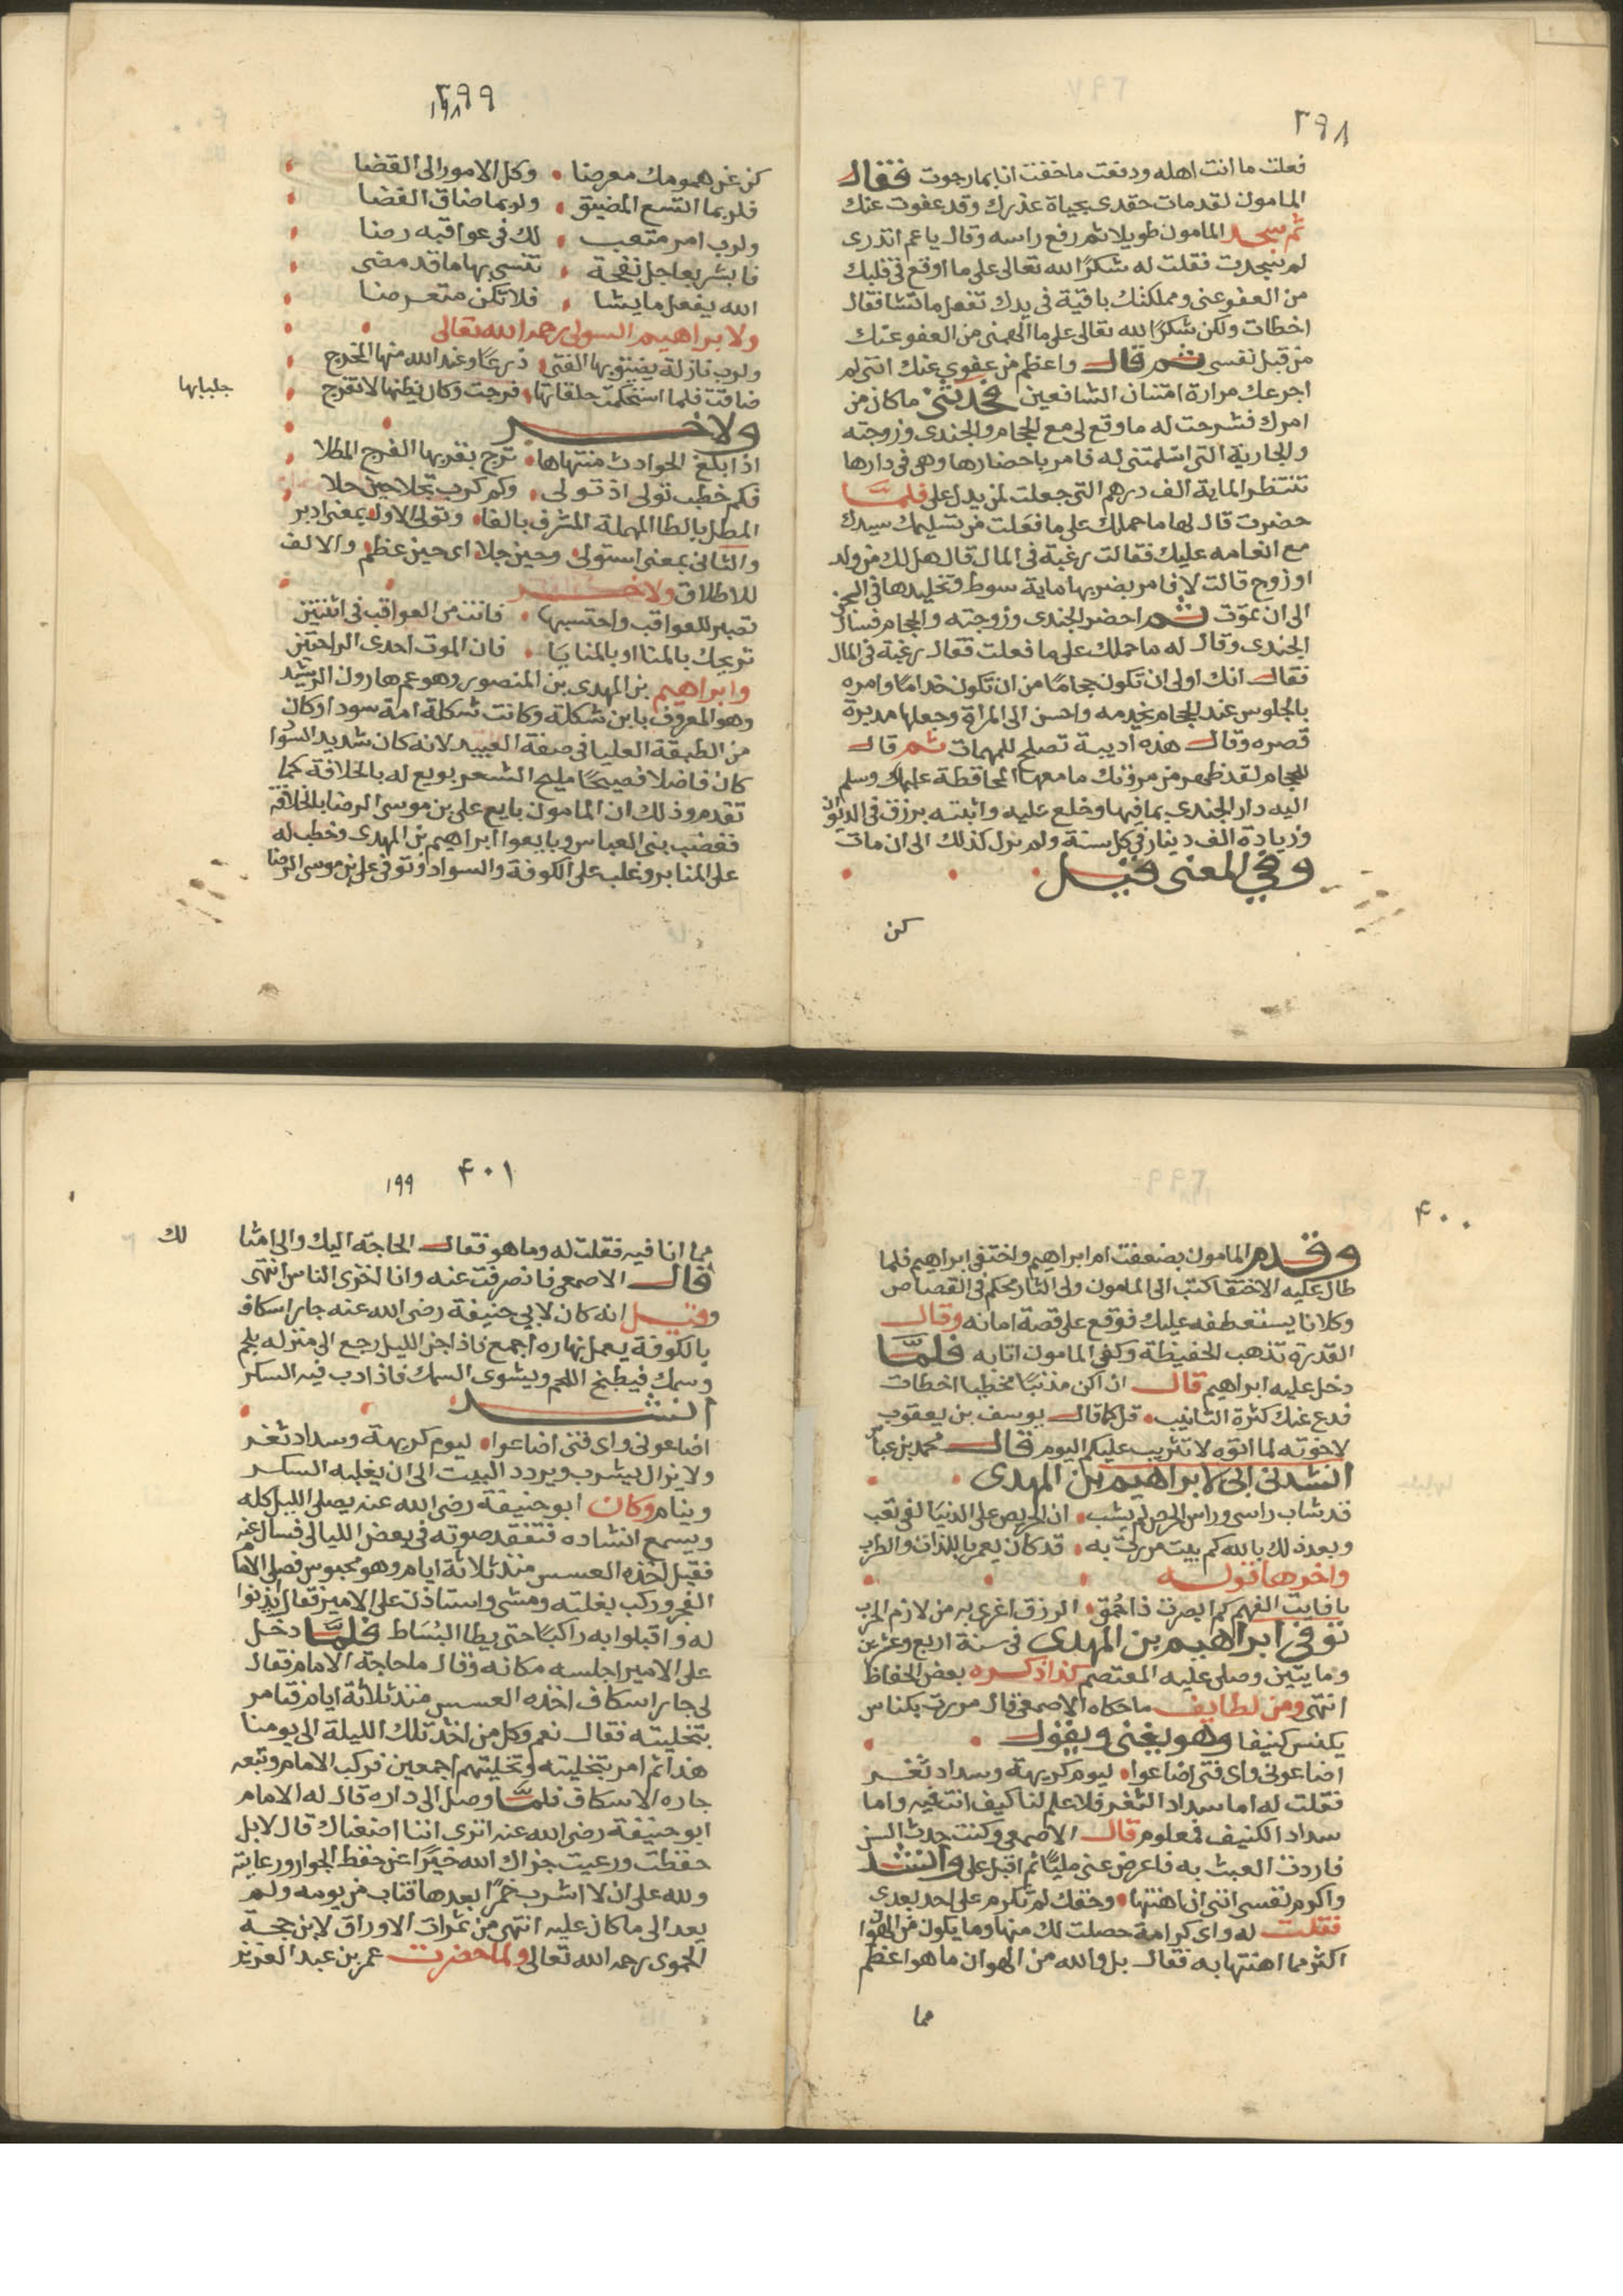 ٣٩٨
فعلت ما انت اهله ودفعت ما خفت انا بما رجوت فقال
المامون لقد مات حقدى بحياة عذرك وقد عفوت عنك
ثم سجد المامون طويلا ثم رفع راسه وقال يا عم اتدرى
لم سجدت فقلت له شكرًا لله تعالى على ما اوقع فى قلبك
من العفو عنى ومملكتك باقية فى يدك تفعل ما تشا فقال
اخطات ولكن شكرًا لله تعالى على ما الهمنى من العفو عنك
من قبل نفسى ثم قال واعظم من عفوي عنك اننى لم
اجرعك مرارة امتنان الشافعين فحدثنى ما كان من
امرك فشرحت له ما وقع لى مع الحجام والجندى وزوجته
والجارية التى اسلمتنى له فامر باحضارها وهى فى دارها
تنتظر الماية الف درهم التى جعلت لمن يدل على فلما
حضرت قال لها ما حملك على ما فعلت من تسليمك سيدك
مع انعامه عليك فقالت رغبة فى المال قال هل لك من ولد
او زوج قالت لا فامر بضربها ماية سوط وتخليدها فى السجن
الى ان تموت ثم احضر الجندى وزوجته والحجام فسال
الجندى وقال له ما حملك على ما فعلت فقال رغبة فى المال
فقال انك اولى ان تكون حجامًا من ان تكون خدامًا وامره
بالجلوس عند الحجام يخدمه واحسن الى المراة وجعلها مدبرة
قصره وقال هذه اديبة تصلح للمهمات ثم قال
للحجام لقد ظهر من مروتك ما معها المحافظة عليك وسلم
اليه دار الجندى بما فيها وخلع عليه واثبته برزق فى الديوان
وزيادة الف دينار فى كل سنة ولم يزل كذلك الى ان مات
وفى المعنى قيل
كن
٣٩٩
١٩٨
كن عن همومك معرضا • وكل الامور الى القضا
فلربما اتسع المضيق • ولربما ضاق الفضا
ولرب امر متعب • لك فى عواقبه رضا
فابشر بعاجل نفحة • تنسى بها ما قد مضى
الله يفعل ما يشا • فلا تكن متعرضا
ولابراهيم السولى رحمه الله تعالى
ولرب نازلة يضيق بها الفتى • ذرعًا وعند الله منها المخرج
ضاقت فلما استحكمت حلقاتها • فرجت وكان يظنها لا تفرج
جلبابها
ولاخر
اذا بلغ الحوادث منتهاها • ترج بقربها الفرج المطلا
فكم خطب تولى اذ تولى • وكم كرب تجلا حين حلا
المطل بالطا المهملة المشرف بالفا • وتولى الاول بمعنى ادبر
والثانى بمعنى استولى • وحين جلا • اى حين عظم والالف
للاطلاق ولاخر
تصبر للعواقب واحتسبها • فانت من العواقب فى اثنتين
تريحك بالمنا او بالمنايا • فان الموت احدى الراحتين
وابراهيم بن المهدى بن المنصور وهو عم هارون الرشيد
وهو المعروف بابن شكلة وكانت شكلة امة سودا وكان
من الطبقة العليا فى صفة العبيد لانه كان شديد السوا
كان فاضلا فصيحًا مليح الشعر بويع له بالخلافة كما
تقدم وذلك ان المامون بايع على بن موسى الرضا بالخلافة
فغضب بنى العباس وبايعوا ابراهيم بن المهدى وخطب له
على المنابر وغلب على الكوفة والسواد وتوفى على بن موسى الرضا
٤٠٠
وقدم المامون بضعفت امر ابراهيم واختفى ابراهيم فلما
طال عليه الاختفا كتب الى المامون ولى الثار محكم فى القصاص
وكلانا يستعطفه عليك فوقع على قصة امانه وقال
القدرة تذهب الحفيظة وكفى المامون اتابه فلمَّا
دخل عليه ابراهيم قال ان اكن مذنبًا مخطيا اخطات
فدع عنك كثرة التانيب • قل كما قال يوسف بن يعقوب
لاخوته لما اتوه لا تثريب عليكم اليوم قال محمد بن عباس
انشدنى ابى لابراهيم بن المهدى
قد شاب راسى وراس الحرص لم يشب • ان الحريص على الدنيا لفى تعب
وبعد ذلك بالله كم بيت مررت به • قد كان يعمر باللذات والطرب
واخرها قوله
يا فايت الفهم كم ابصرت ذا حمق • الرزق اغرى به من لازم الجرب
توفى ابراهيم بن المهدى فى سنة اربع وعشرين
ومايتين وصلى عليه المعتصم كذا ذكره بعض الحفاظ
انتهى ومن لطايف ما حكاه الاصمعى قال مررت بكناس
يكنس كنيفا وهو يغنى ويقول
اضاعونى واى فتى اضاعوا • ليوم كريهة وسداد ثغر
فقلت له اما سداد الثغر فلا علم لنا كيف انت فيه واما
سداد الكنيف فمعلوم قال الاصمعى وكنت حدث السن
فاردت العبث به فاعرض عنى مليًا ثم اقبل على وانشد
واكرم نفسى اننى ان اهنتها • وحقك لم تكرم على احد بعدى
فقلت له واى كرامة حصلت لك منها وما يكون من الهوان
اكثر مما اهنتها به فقال بل والله من الهوان ما هو اعظم
مما
٤٠١
١٩٩
مما انا فيه فقلت له وما هو فقال الحاجة اليك والى امثا
لك
قال الاصمعى فانصرفت عنه وانا اخزى الناس انتهى
وقيل انه كان لابى حنيفة رضى الله عنه جار اسكاف
بالكوفة يعمل نهاره اجمع فاذا جن الليل رجع الى منزله بلحم
وسمك فيطبخ اللحم ويشوى السمك فاذا دب فيه السكر
انشد
اضاعونى واى فتى اضاعوا • ليوم كريهة وسداد ثغر
ولا يزال يشرب ويردد البيت الى ان يغلبه السكر
وينام وكان ابو حنيفة رضى الله عنه يصلى الليل كله
ويسمع انشاده فتفقد صوته فى بعض الليالى فسال عنه
فقيل اخذه العسس منذ ثلاثة ايام وهو محبوس فصلى الامام
الفجر وركب بغلته ومشى واستاذن على الامير فقال ايذنوا
له واقبلوا به راكبًا حتى يطا البُسَاط فلمَّا دخل
على الامير اجلسه مكانه وقال ما حاجة الامام فقال
لى جار اسكاف اخذه العسس منذ ثلاثة ايام فتامر
بتخليته فقال نعم وكل من اخذ تلك الليلة الى يومنا
هذا ثم امر بتخليته وتخليتهم اجمعين فركب الامام وتبعه
جاره الاسكاف فلمَّا وصل الى داره قال له الامام
ابو حنيفة رضى الله عنه اترى اننا اضعناك قال لا بل
حفظت ورعيت جزاك الله خيرًا عن حفظ الجوار ورعايته
ولله على ان لا اشرب خمرًا بعدها فتاب من يومه ولم
يعد الى ما كان عليه انتهى من ثمرات الاوراق لابن حجة
الحموى رحمه الله تعالى ولما حضرت عمر بن عبد العزيز